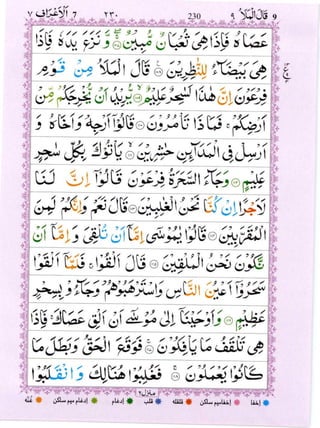 ٩ قَالَ الْمَلَأُ ٩ 230 ٢٣٠ 7 اَلْاَعْرَاف ٧
عَصَاهُ فَاِذَا هِىَ ثُعْبَانٌ مُّبِيْنٌ ۝ وَّنَزَعَ يَدَهٗ فَاِذَا
هِىَ بَيْضَآءُ لِلنّٰظِرِيْنَ ۝ قَالَ الْمَلَاُ مِنْ قَوْمِ
فِرْعَوْنَ اِنَّ هٰذَا لَسٰحِرٌ عَلِيْمٌ ۝ يُّرِيْدُ اَنْ يُّخْرِجَكُمْ مِّنْ
اَرْضِكُمْ ۚ فَمَاذَا تَاْمُرُوْنَ ۝ قَالُوْٓا اَرْجِهْ وَاَخَاهُ وَ
اَرْسِلْ فِى الْمَدَآئِنِ حٰشِرِيْنَ ۝ يَاْتُوْكَ بِكُلِّ سٰحِرٍ
عَلِيْمٍ ۝ وَجَآءَ السَّحَرَةُ فِرْعَوْنَ قَالُوْٓا اِنَّ لَنَا
لَاَجْرًا اِنْ كُنَّا نَحْنُ الْغٰلِبِيْنَ ۝ قَالَ نَعَمْ وَاِنَّكُمْ لَمِنَ
الْمُقَرَّبِيْنَ ۝ قَالُوْا يٰمُوْسٰٓى اِمَّآ اَنْ تُلْقِىَ وَاِمَّآ اَنْ
نَّكُوْنَ نَحْنُ الْمُلْقِيْنَ ۝ قَالَ اَلْقُوْا ۚ فَلَمَّآ اَلْقَوْا
سَحَرُوْٓا اَعْيُنَ النَّاسِ وَاسْتَرْهَبُوْهُمْ وَجَآءُوْ بِسِحْرٍ
عَظِيْمٍ ۝ وَاَوْحَيْنَآ اِلٰى مُوْسٰٓى اَنْ اَلْقِ عَصَاكَ ۚ فَاِذَا
هِىَ تَلْقَفُ مَا يَاْفِكُوْنَ ۝ فَوَقَعَ الْحَقُّ وَبَطَلَ مَا
كَانُوْا يَعْمَلُوْنَ ۝ فَغُلِبُوْا هُنَالِكَ وَانْقَلَبُوْا
منزل ٢
اخفا اخفا میم ساکن قلقلہ قلب ادغام ادغام میم ساکن غنہ